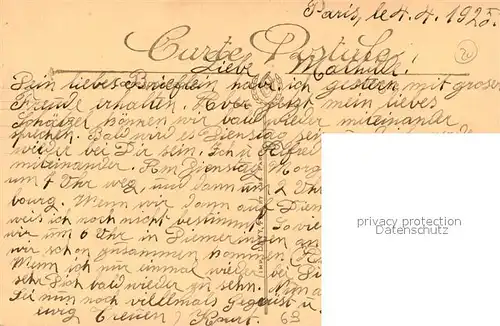 Paris, le 4. 4. 1925.
Carte Postale
Liebe Mathilde!
Dein liebes Brieflein habe ich gestern mit grosser
Freude erhalten. Aber jetzt mein liebes
können wir bald wieder miteinander
sprechen. Bald wird es Dienstag sein
wieder bei Dir sein. Ich
miteinander. Am Dienstag Morg
um 7 Uhr weg, und dann um 2 Uhr
bourg. Wenn wir dann auf Diem
weis ich noch nicht bestimmt. Soviel
wir um 6 Uhr in Diemeringen an
wir schon zusammen kommen
Wenn ich nur einmal wieder bei Di
sehr Dich bald wieder zu sehn. Nun
Sei nun noch vielmals gegrüst u
ewig Treuen
63
privacy protection
Datenschutz